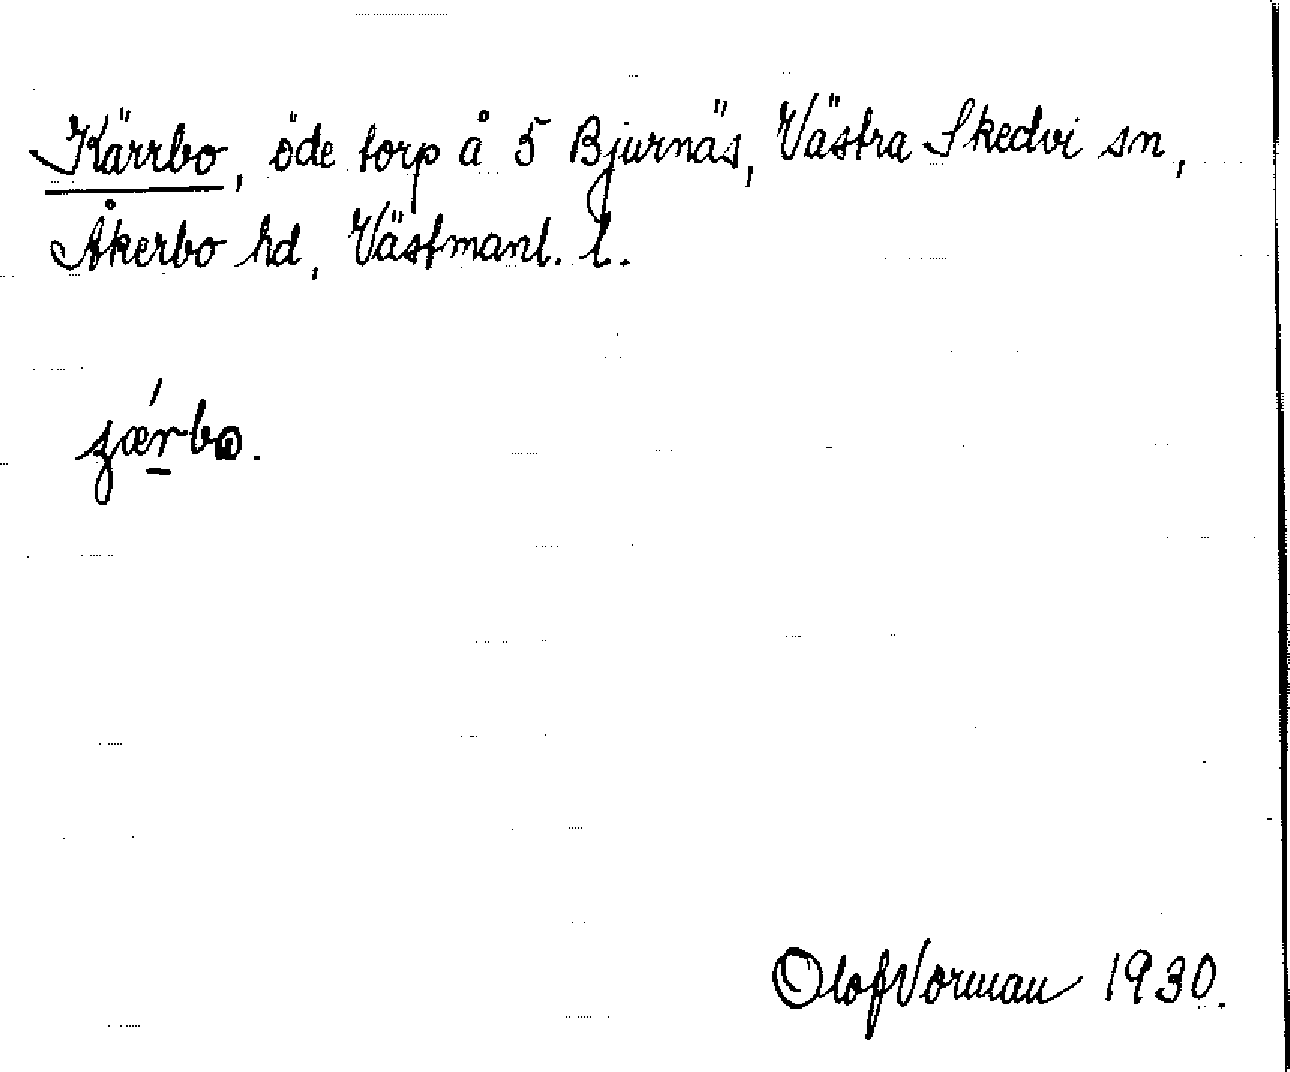 Kärrbo, öde torp å 5 Bjurnäs, Västra Skedvi sn,
Åkerbo hd, Västmanl. l.
1930.